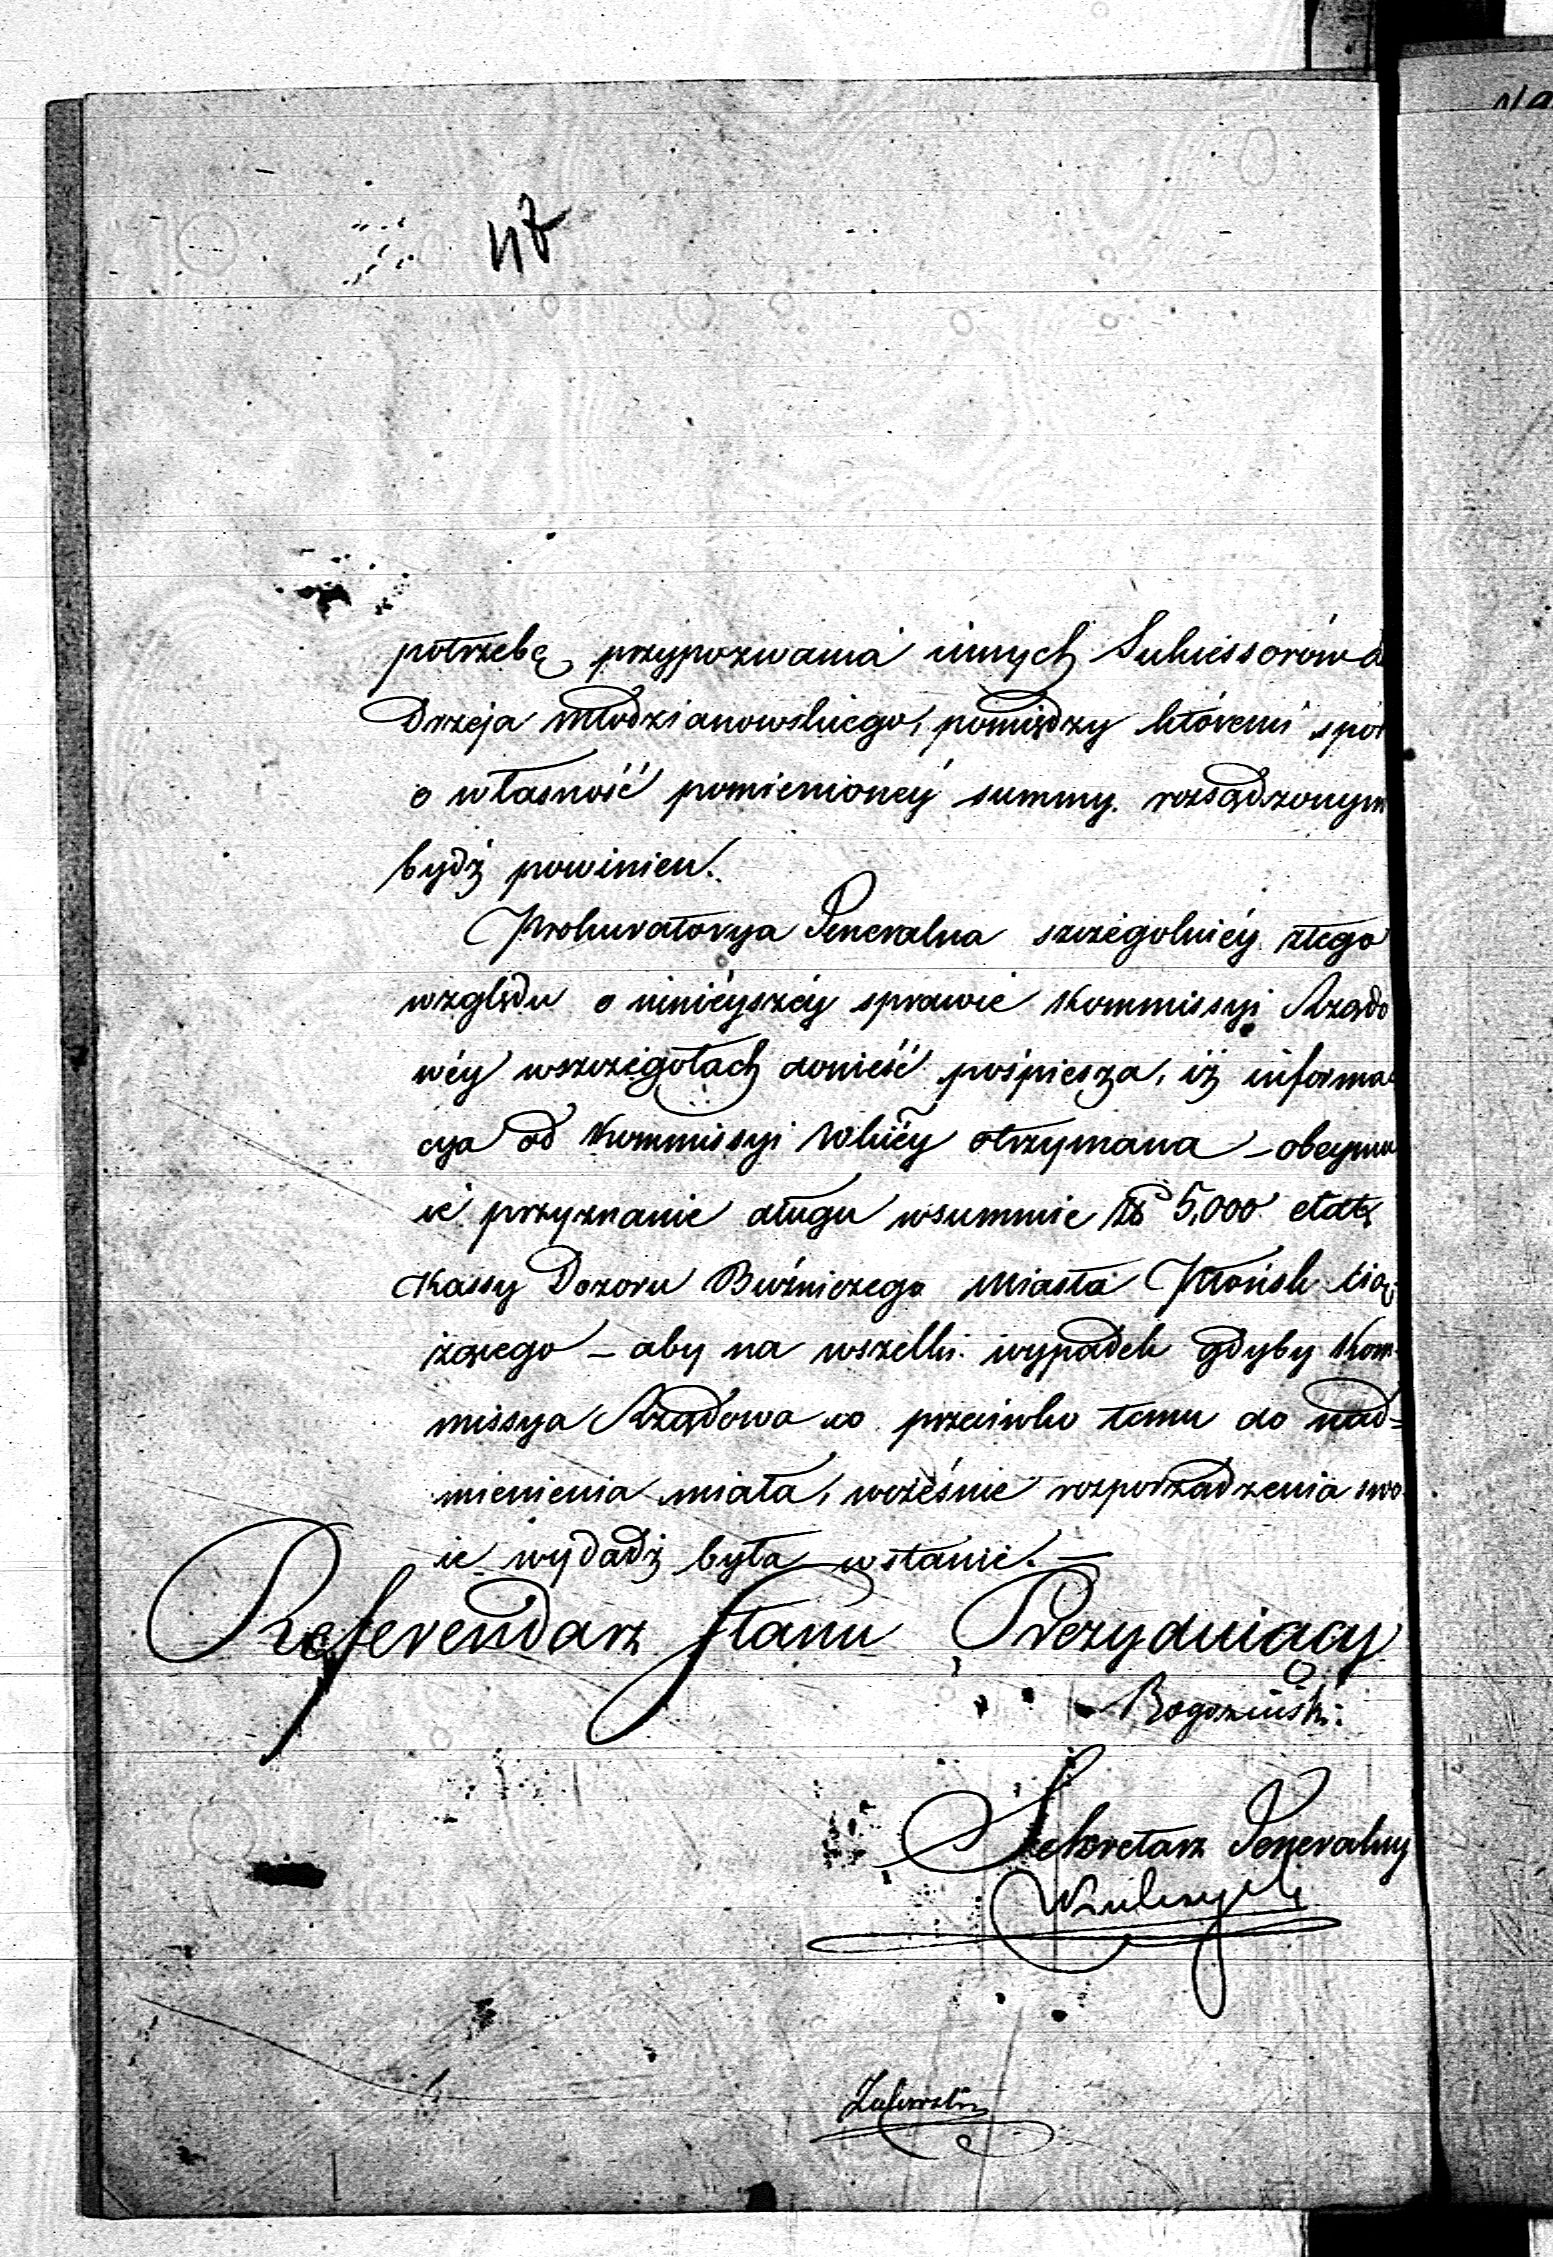 47
potrzebę przypozwania innych Sukcessorów A
Drzeja Młodzianowskiego, pomiędzy któremi spór
o własność pomienionéy summy rozsądzonym
bydź powinien.
Prokuratorya Generalna szczególniéy ztego
względu o niniéyszéy sprawie Kommissyi Rządo
wéy wszczegółach donieść pośpiesza, iż informa
cya od Kommissyi Wkiéy otrzymana – obeymu
ie przyznanie długu wsummie 5,000
Kassy Dozoru Bużniczego Miasta Płońsk cią
żącego – aby na wszelki wypadek gdyby Kom-
missya Rządowa co przeciwko temu do nad=
mienienia miała, wcześnie rozporządzenia swo
ie wydadź była wstanie. —
Referendarz Stanu Prezyduiący
Sekretarz Generalny